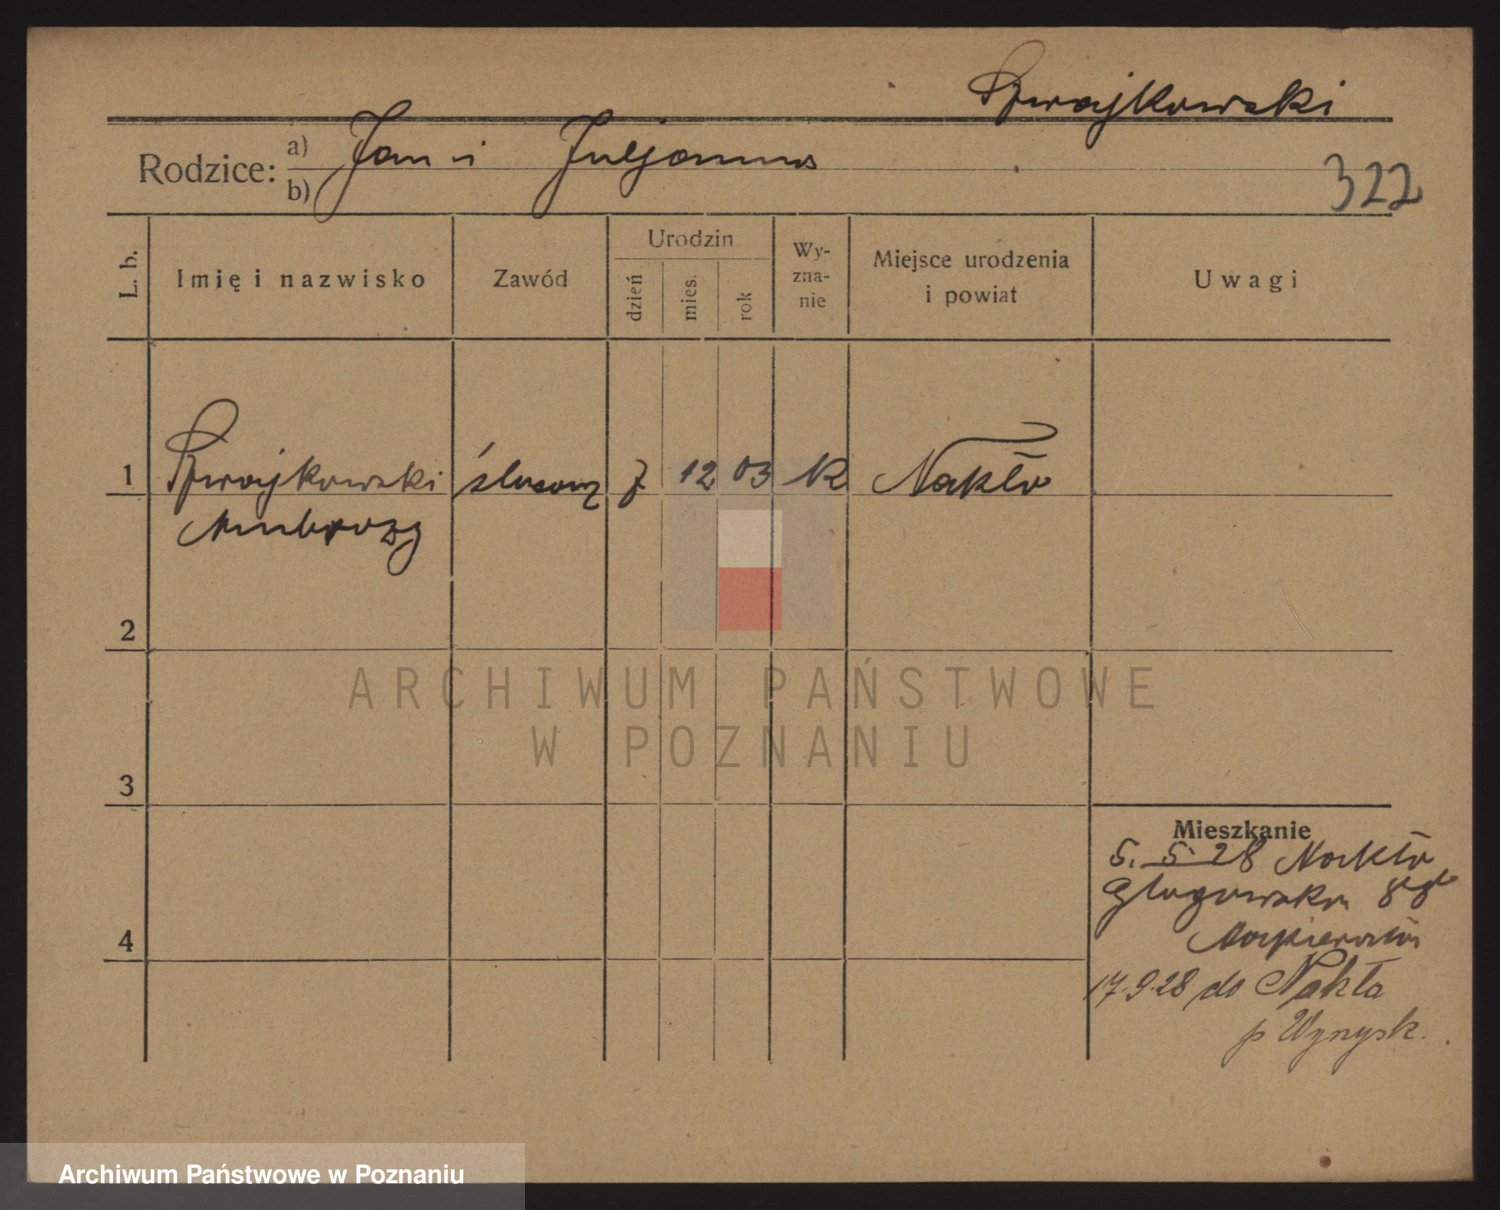 Szwajkowski
Rodzice: a) Jan i Juljanna
b)
322
L. b.
Imię i nazwisko
Zawód
Urodzin
dzień
mies.
rok
Wy-
zna-
nie
Miejsce urodzenia
i powiat
Uwagi
1 Szwajkowski ślusarz 7 12 03 K Nakło
Ambrozy
2
3
4
ARCHIWUM PAŃSTWOWE
W POZNANIU
Mieszkanie
5. 5. 28 Nakło
Głogowska 88
17.9.28 do Nakła
p Wyrzysk.
Archiwum Państwowe w Poznaniu